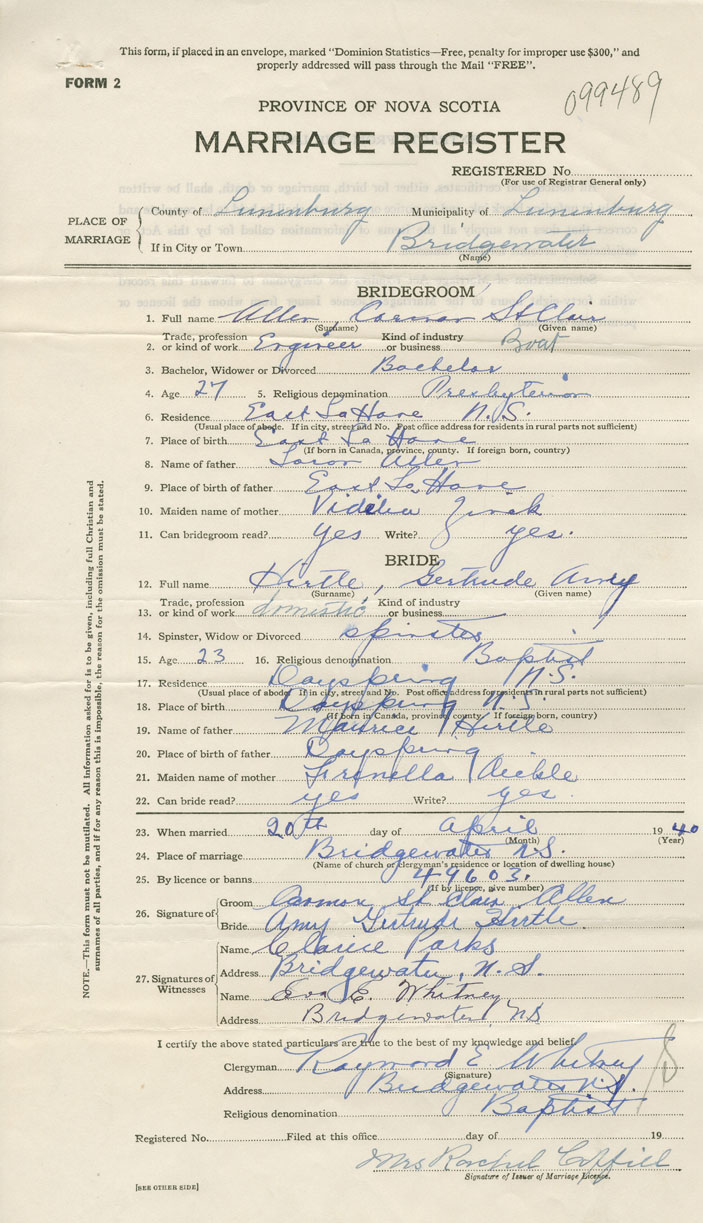 This form, if placed in an envelope, marked "Dominion Statistics—Free, penalty for improper use $300," and
properly addressed will pass through the Mail "FREE".
FORM 2
099489
PROVINCE OF NOVA SCOTIA
MARRIAGE REGISTER
REGISTERED No.
(For use of Registrar General only)
PLACE OF MARRIAGE
County of Lunenburg Municipality of Lunenburg
If in City or Town Bridgewater
(Name)
BRIDEGROOM
1. Full name Allen, St Clair
(Surname) (Given name)
2. Trade, profession or kind of work Engineer Kind of industry or business Boat
3. Bachelor, Widower or Divorced Bachelor
4. Age 27 5. Religious denomination Presbyterian
6. Residence East La Have N.S.
(Usual place of abode. If in city, street and No. Post office address for residents in rural parts not sufficient)
7. Place of birth East La Have
(If born in Canada, province, county. If foreign born, country)
8. Name of father Allen
9. Place of birth of father East La Have
10. Maiden name of mother Zinck
11. Can bridegroom read? yes Write? yes.
BRIDE
12. Full name Hirtle, Gertrude Amy
(Surname) (Given name)
13. Trade, profession or kind of work domestic Kind of industry or business
14. Spinster, Widow or Divorced spinster
15. Age 23 16. Religious denomination Baptist
17. Residence Dayspring N.S.
(Usual place of abode. If in city, street and No. Post office address for residents in rural parts not sufficient)
18. Place of birth Dayspring N.S.
(If born in Canada, province, county. If foreign born, country)
19. Name of father Maurice Hirtle
20. Place of birth of father Dayspring
21. Maiden name of mother
22. Can bride read? yes Write? yes
23. When married 20th day of April 1940
(Month) (Year)
24. Place of marriage Bridgewater N.S.
(Name of church or clergyman's residence or location of dwelling house)
25. By licence or banns 49603.
(If by licence, give number)
26. Signature of
Groom St Clair Allen
Bride Amy Gertrude Hirtle
27. Signatures of Witnesses
Name Parks
Address Bridgewater, N.S.
Name Eva E. Whitney
Address Bridgewater NS
I certify the above stated particulars are true to the best of my knowledge and belief.
Clergyman Raymond E Whitney
(Signature)
Address Bridgewater N.S.
Religious denomination Baptist
Registered No. Filed at this office day of 19
Mrs Rachel
Signature of Issuer of Marriage Licence.
[SEE OTHER SIDE]
NOTE.—This form must not be mutilated. All information asked for is to be given, including full Christian and
surnames of all parties, and if for any reason this is impossible, the reason for the omission must be stated.